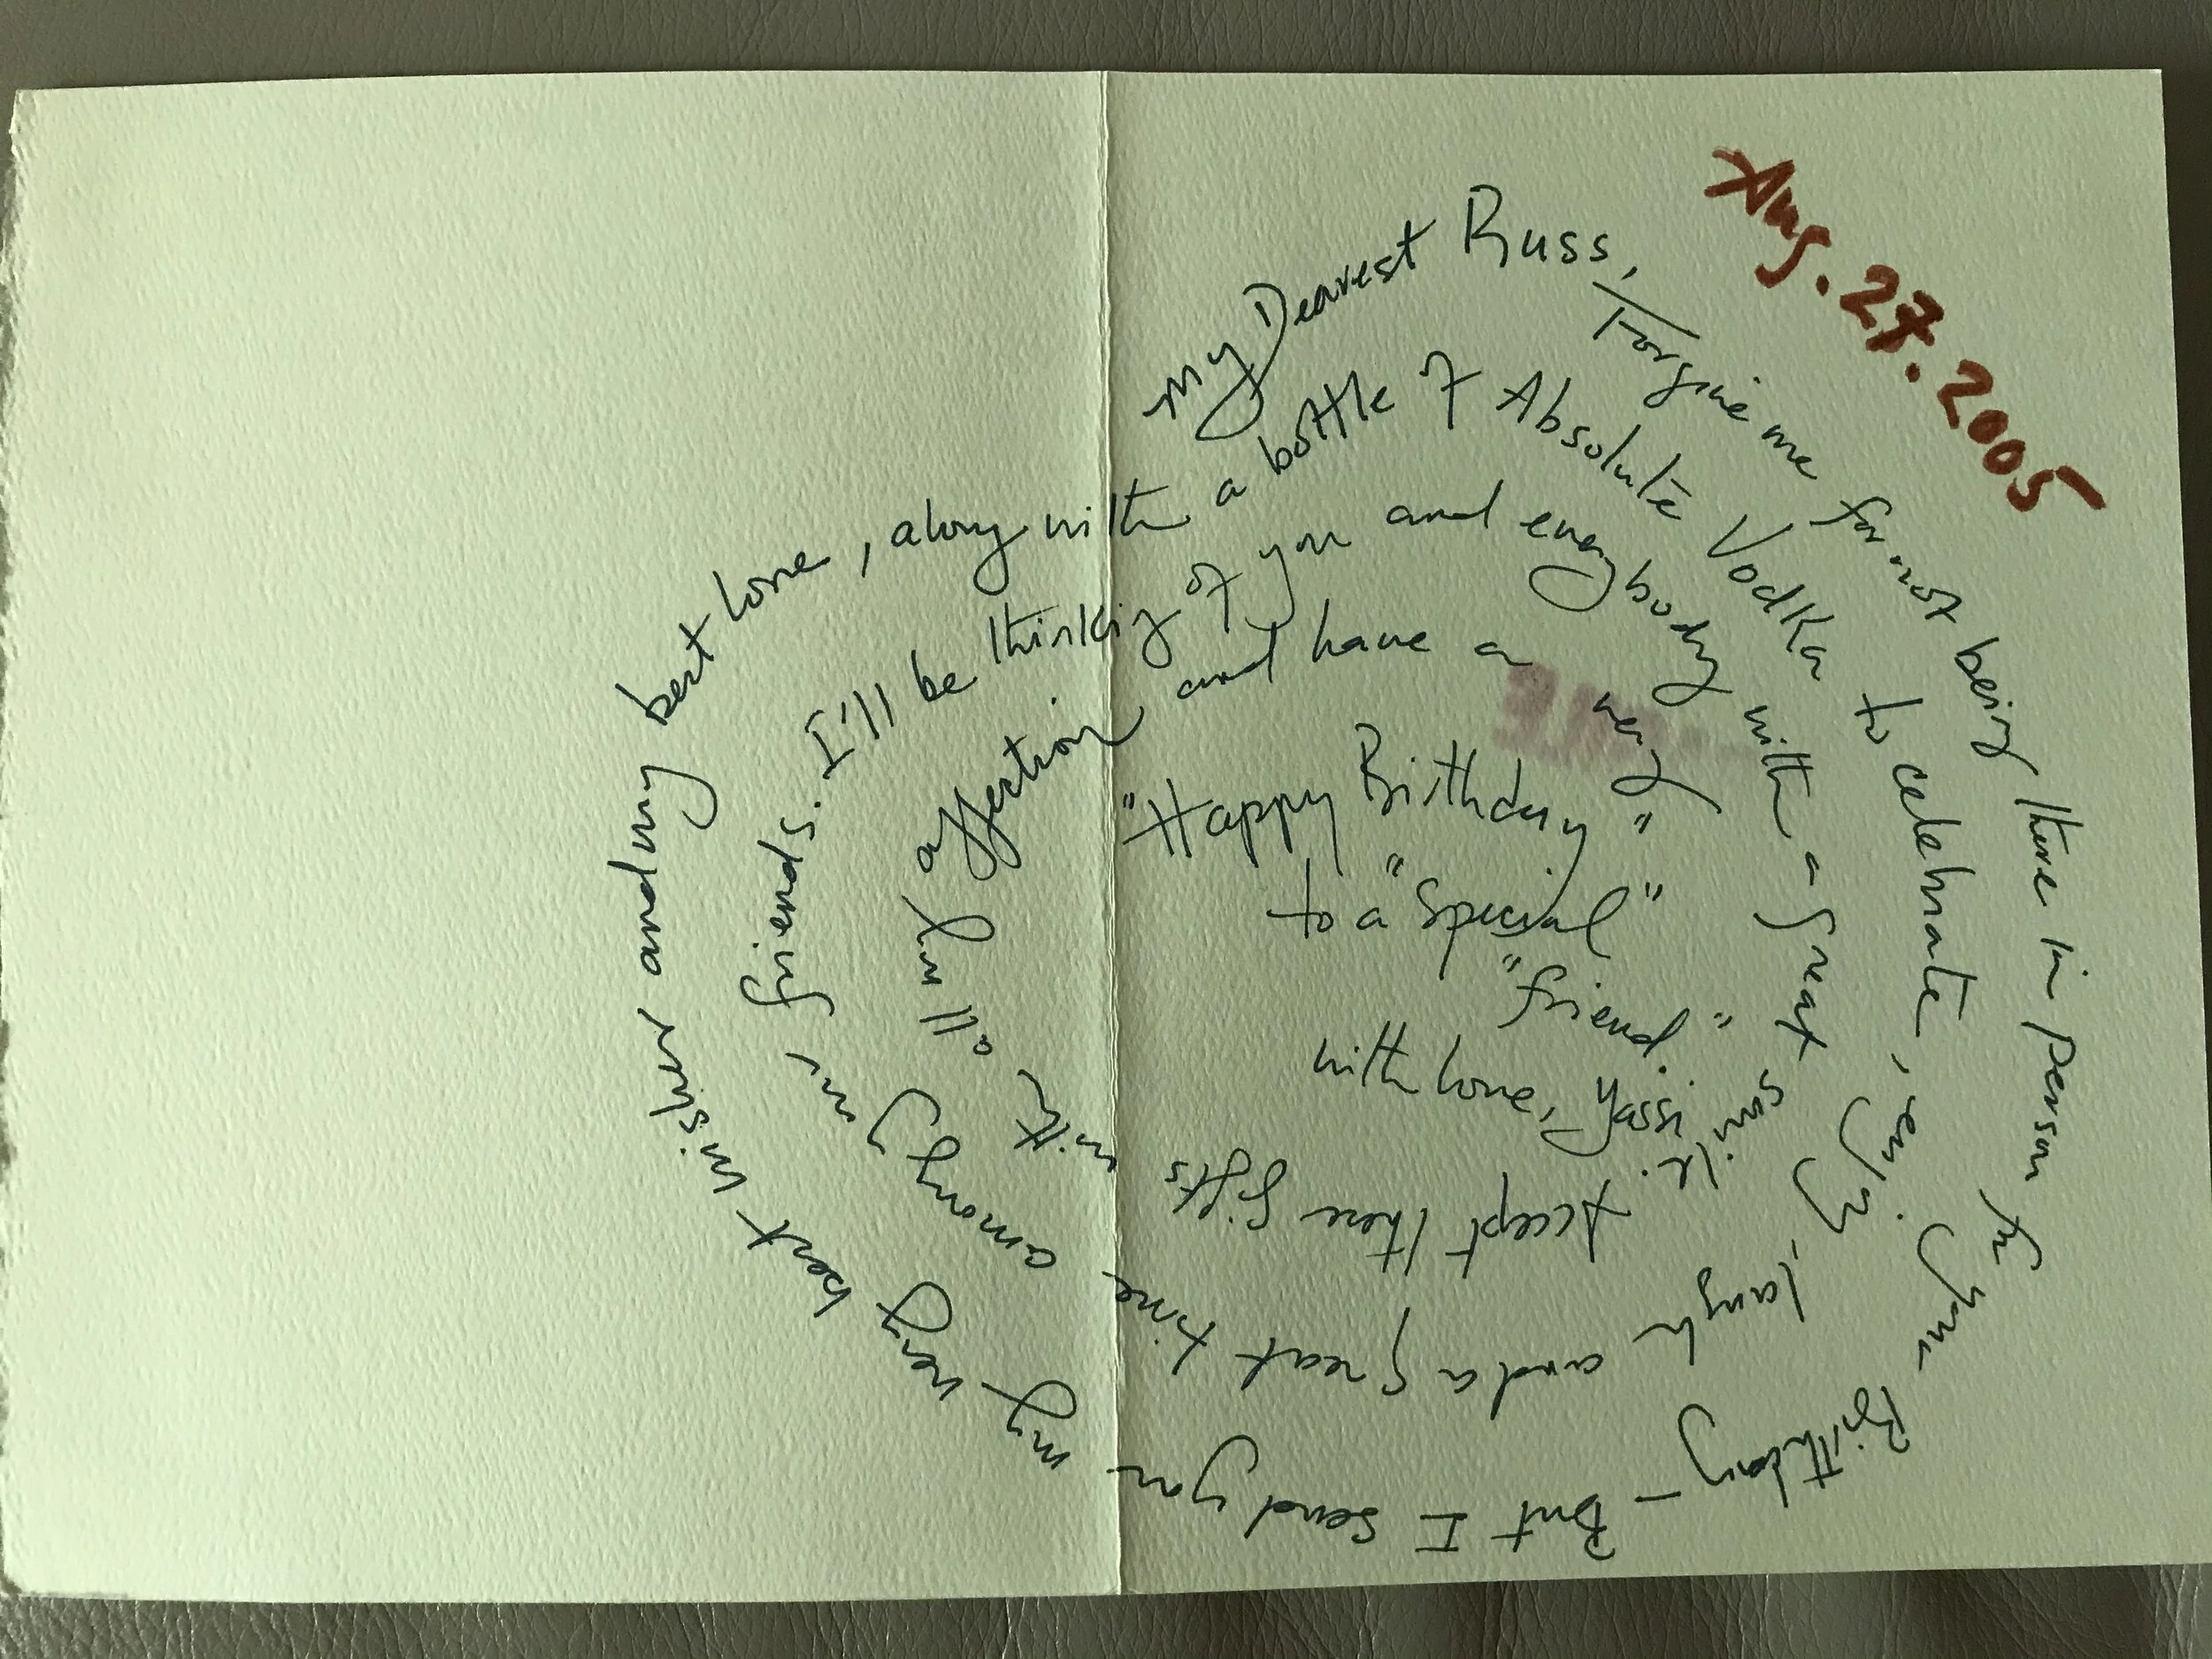 Aug. 27. 2005
My Dearest Russ,
Forgive me for not being there in person for your Birthday – But I send you my very best wishes and my best love, along with a bottle of Absolute Vodka to celebrate, enjoy, laugh and a great time among your friends. I'll be thinking of you and everybody with a great smile. Accept these gifts with all my affection and have a very
"Happy Birthday"
to a "Special"
"friend."
with love, Yassi